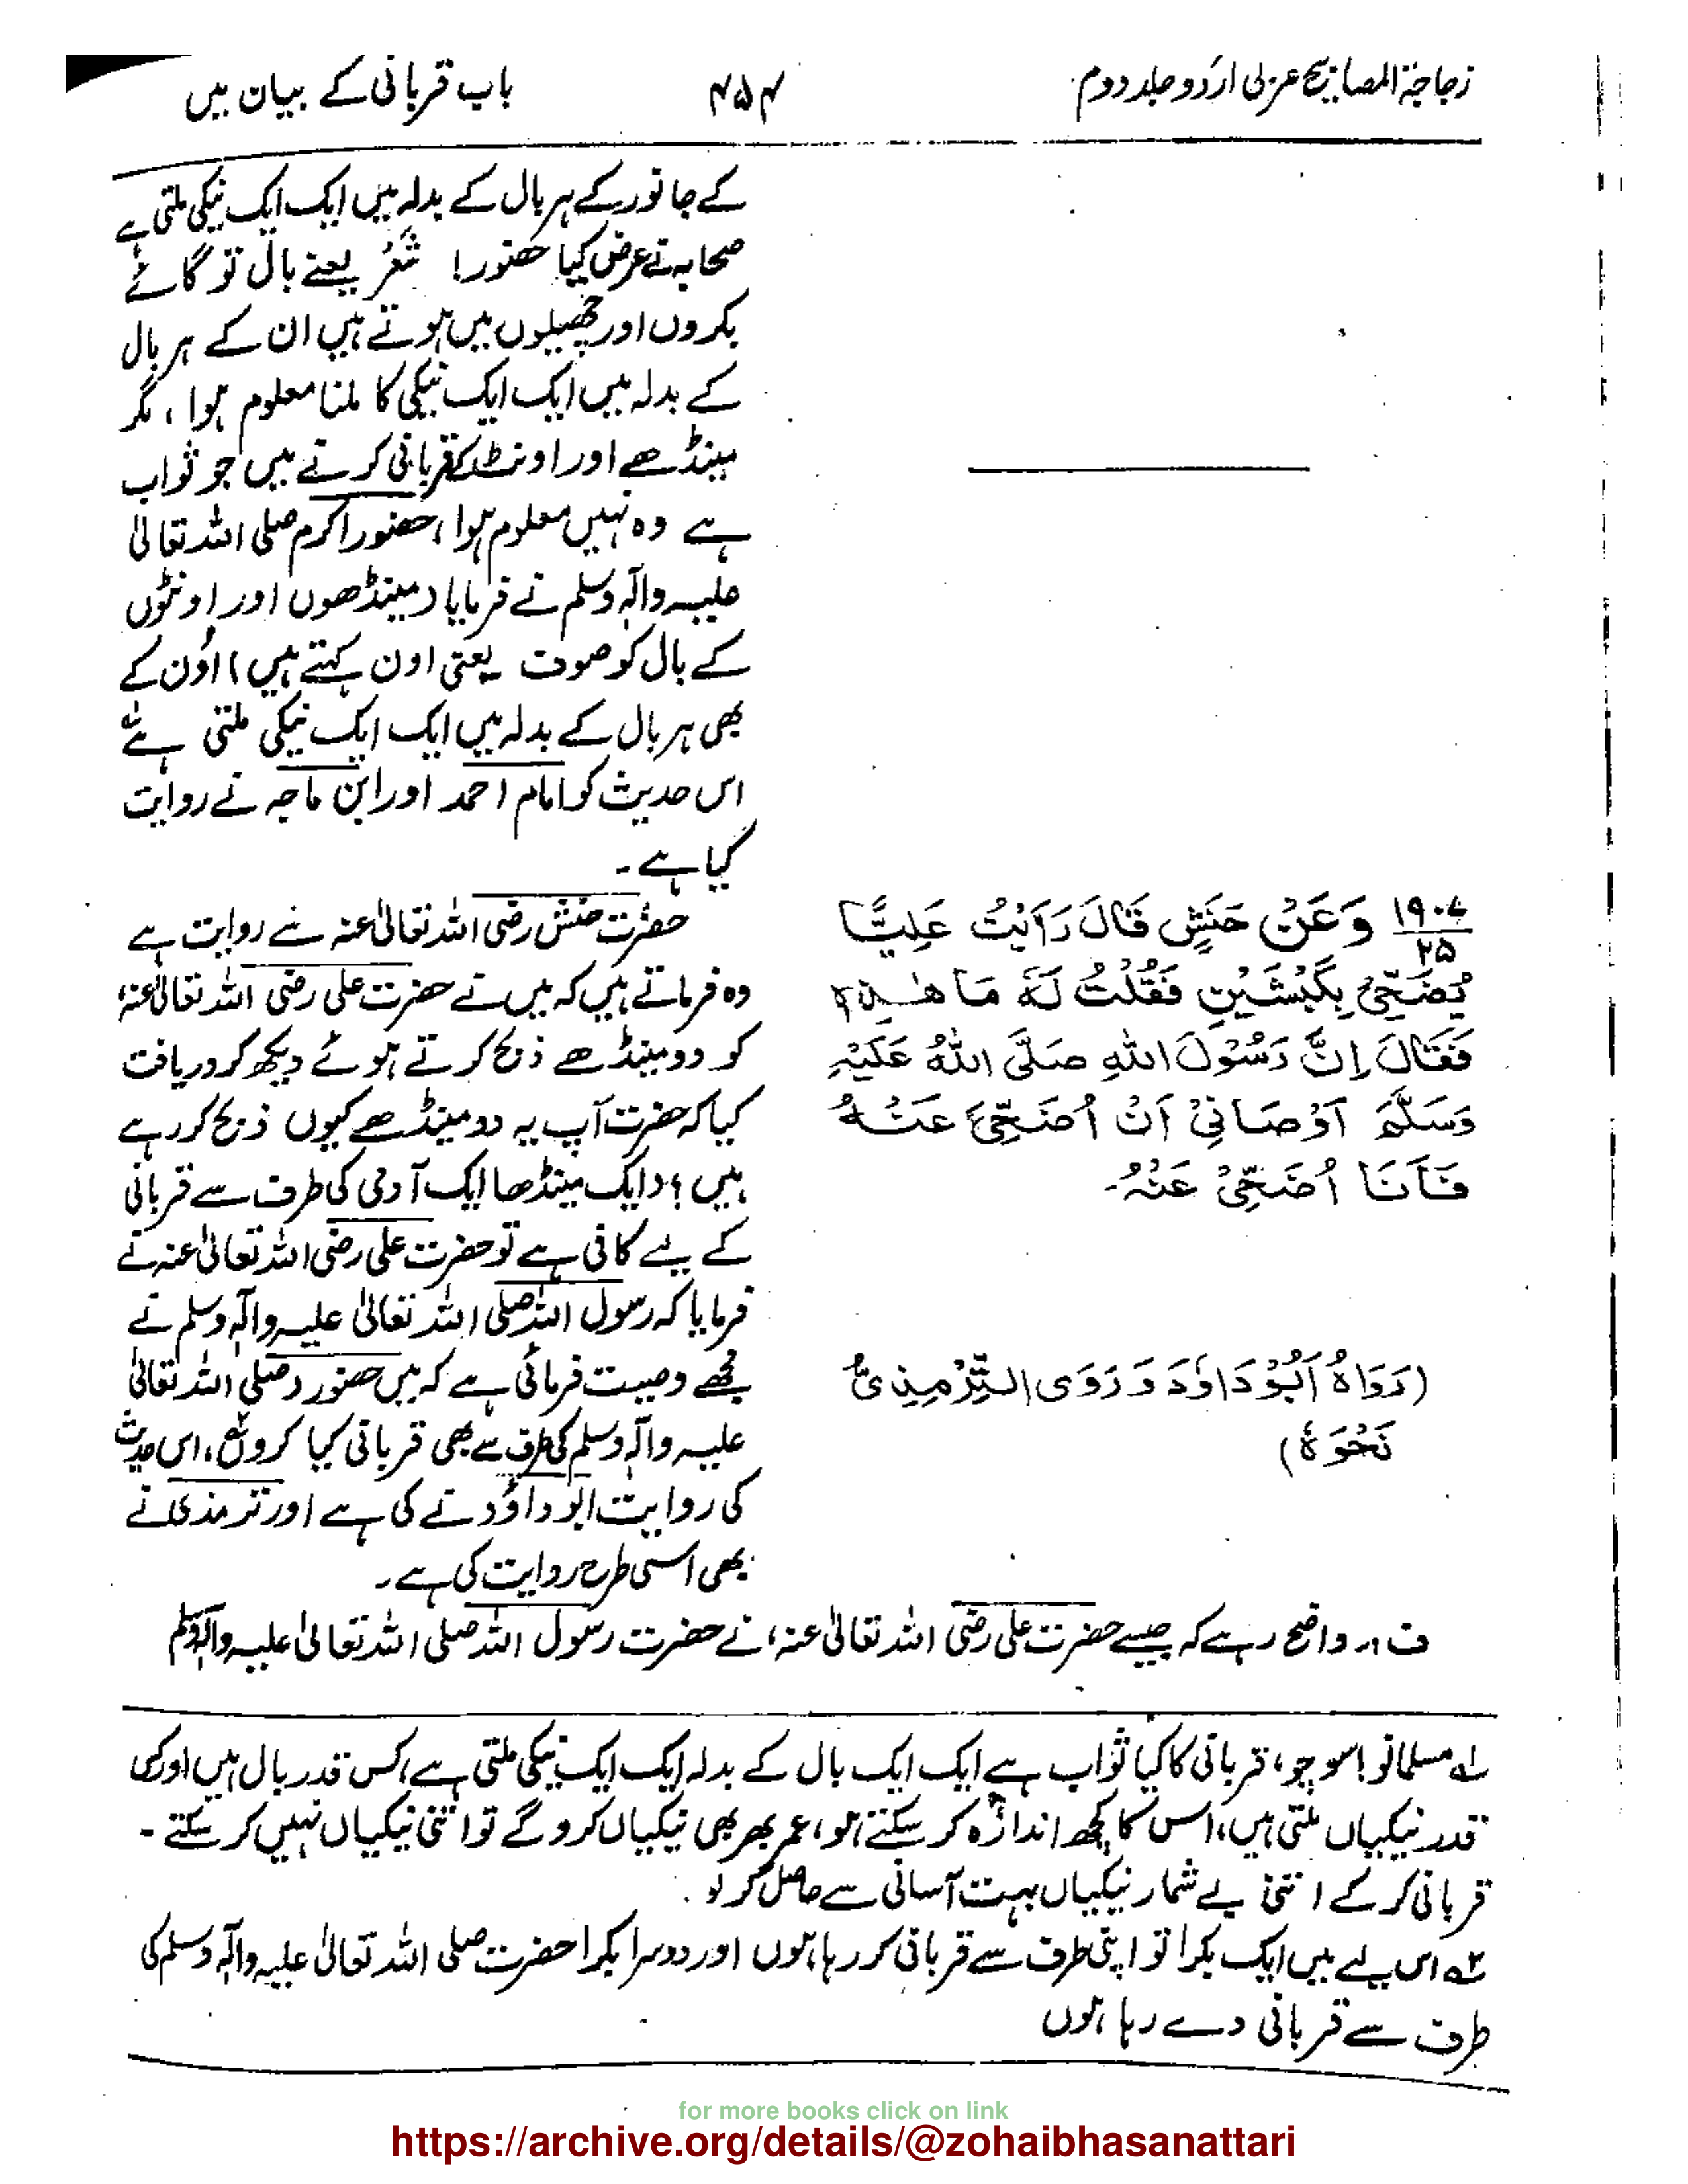 زجاجۃ المصابیح عربی اردو جلد دوم
۴۵۴
باب قربانی کے بیان میں
کے جانور کے ہر بال کے بدلہ میں ایک ایک نیکی ملتی ہے
صحابہ نے عرض کیا حضور! شَعْر یعنے بال تو گائے
بکروں اور چھیلوں میں ہوتے ہیں ان کے ہر بال
کے بدلہ میں ایک ایک نیکی کا ملنا معلوم ہوا ، مگر
مینڈھے اور اونٹ کی قربانی کرتے میں جو ثواب
ہے وہ نہیں معلوم ہوا ، حضور اکرم صلی اللہ تعالیٰ
علیہ وآلہٖ وسلم نے فرمایا (مینڈھوں اور اونٹوں
کے بال کو صوف یعنی اون کہتے ہیں) اُون کے
بھی ہر بال کے بدلہ میں ایک ایک نیکی ملتی ہے لہ
اس حدیث کو امام احمد اور ابن ماجہ نے روایت
کیا ہے ۔
۱۹۰۷/۲۵ وَعَنْ حَنَشٍ قَالَ رَاَیْتُ عَلِیًّا
یُضَحِّیْ بِکَبْشَیْنِ فَقُلْتُ لَہٗ مَا ھٰذِہٖ
فَقَالَ اِنَّ رَسُوْلَ اللہِ صَلَّی اللہُ عَلَیْہِ
وَسَلَّمَ اَوْصَانِیْ اَنْ اُضَحِّیَ عَنْہُ
فَاَنَا اُضَحِّیْ عَنْہُ۔
(رَوَاہُ اَبُوْدَاوٗدَ وَ رَوَی التِّرْمِذِیُّ
نَحْوَہٗ)
حضرت حنش رضی اللہ تعالیٰ عنہ سے روایت ہے
وہ فرماتے ہیں کہ میں نے حضرت علی رضی اللہ تعالیٰ عنہ،
کو دو مینڈھے ذبح کرتے ہوئے دیکھ کر دریافت
کیا کہ حضرت آپ یہ دو مینڈھے کیوں ذبح کر رہے
ہیں ؟ (ایک مینڈھا ایک آدمی کی طرف سے قربانی
کے لیے کافی ہے تو حضرت علی رضی اللہ تعالیٰ عنہ نے
فرمایا کہ رسول اللہ صلی اللہ تعالیٰ علیہ وآلہٖ وسلم نے
مجھے وصیت فرمائی ہے کہ میں حضور (صلی اللہ تعالیٰ
علیہ وآلہٖ وسلم کی طرف سے بھی قربانی کیا کروں ۲ع، اس حدیث
کی روایت ابو داؤد نے کی ہے اور ترمذی نے
بھی اسی طرح روایت کی ہے ۔
ف :۔ واضح رہے کہ جیسے حضرت علی رضی اللہ تعالیٰ عنہ، نے حضرت رسول اللہ صلی اللہ تعالیٰ علیہ وآلہٖ وسلم
لہ مسلمانو! سوچو ، قربانی کا کیا ثواب ہے ایک ایک بال کے بدلہ ایک ایک نیکی ملتی ہے، کس قدر بال ہیں اور کس
قدر نیکیاں ملتی ہیں، اس کا کچھ اندازہ کر سکتے ہو ، عمر بھر بھی نیکیاں کرو گے تو اتنی نیکیاں نہیں کر سکتے ۔
قربانی کر کے اتنی بے شمار نیکیاں بہت آسانی سے حاصل کر لو .
۲ہ اس لیے میں ایک بکرا تو اپنی طرف سے قربانی کر رہا ہوں اور دوسرا بکرا حضرت صلی اللہ تعالیٰ علیہ وآلہٖ وسلم کی
طرف سے قربانی دے رہا ہوں
for more books click on link
https://archive.org/details/@zohaibhasanattari